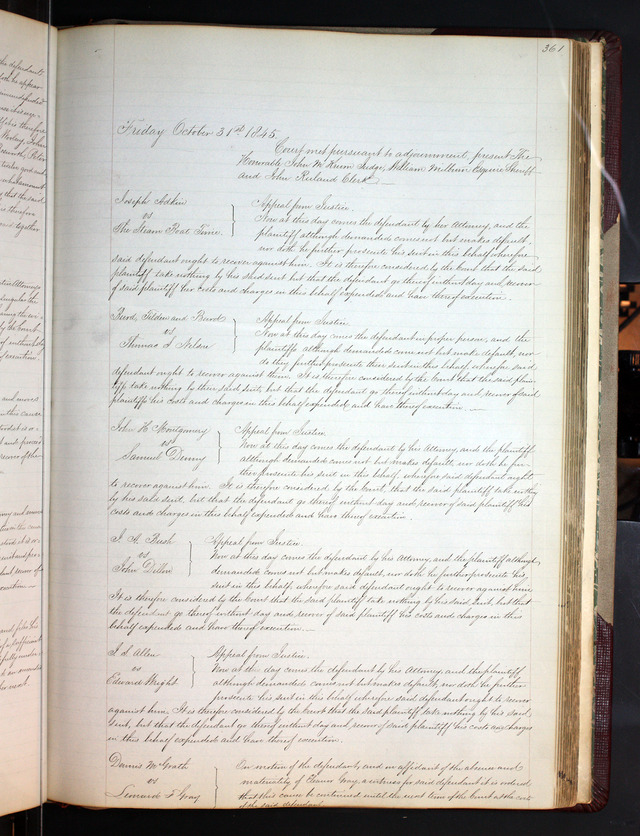 361
Friday October 31st 1845.
Court met pursuant to adjournment, present The
Honorable John M Krum Judge, William Milburn Esquire Sheriff
and John Ruland Clerk
Joseph
vs
The Steam Boat Time
Appeal from Justice.
Now at this day comes the defendant by her Attorney, and the
plaintiff although demanded comes not but makes default,
nor doth he further prosecute his suit in this behalf, wherefore
said defendant ought to recover against him. It is therefore considered by the Court that the said
plaintiff take nothing by his said suit but that the defendant go thereof without day and recover
of said plaintiff her costs and charges in this behalf expended and have thereof execution.
Tilden and
vs
Thomas J Nelson
Appeal from Justice
Now at this day comes the defendant in proper person, and the
plaintiffs although demanded come not but make default, nor
do they further prosecute their suit in this behalf, wherefore said
defendant ought to recover against them. It is therefore considered by the Court that the said plain-
tiffs take nothing by their said suit, but that the defendant go thereof without day and recover of said
plaintiffs his costs and charges in this behalf expended, and have thereof execution.
John H. Montgomery
vs
Samuel Denny
Appeal from Justice.
Now at this day comes the defendant by his Attorney, and the plaintiff
although demanded comes not but makes default, nor doth he fur-
ther prosecute his suit in this behalf, wherefore said defendant ought
to recover against him. It is therefore considered by the Court, that the said plaintiff take nothing
by his said suit, but that the defendant go thereof without day and recover of said plaintiff his
costs and charges in this behalf expended and have thereof execution.
A Bush
vs
John Dillon
Appeal from Justice.
Now at this day comes the defendant by his Attorney, and the plaintiff although
demanded comes not but makes default, nor doth he further prosecute his
suit in this behalf, wherefore said defendant ought to recover against him.
It is therefore considered by the Court that the said plaintiff take nothing by his said suit, but that
the defendant go thereof without day and recover of said plaintiff his costs and charges in this
behalf expended and have thereof execution.
Allen
vs
Edward Wright
Appeal from Justice.
Now at this day comes the defendant by his Attorney, and the plaintiff
although demanded comes not but makes default, nor doth he further
prosecute his suit in this behalf wherefore said defendant ought to recover
against him. It is therefore considered by the Court that the said plaintiff take nothing by his said
suit, but that the defendant go thereof without day and recover of said plaintiff his costs and charges
in this behalf expended and have thereof execution.
Dennis McGrath
vs
Leonard T Gray
On motion of the defendant, and on affidavit of the absence and
materiality of Gray, a witness for said defendant it is ordered
that this cause be continued until the next term of the Court at the costs
of the said defendant